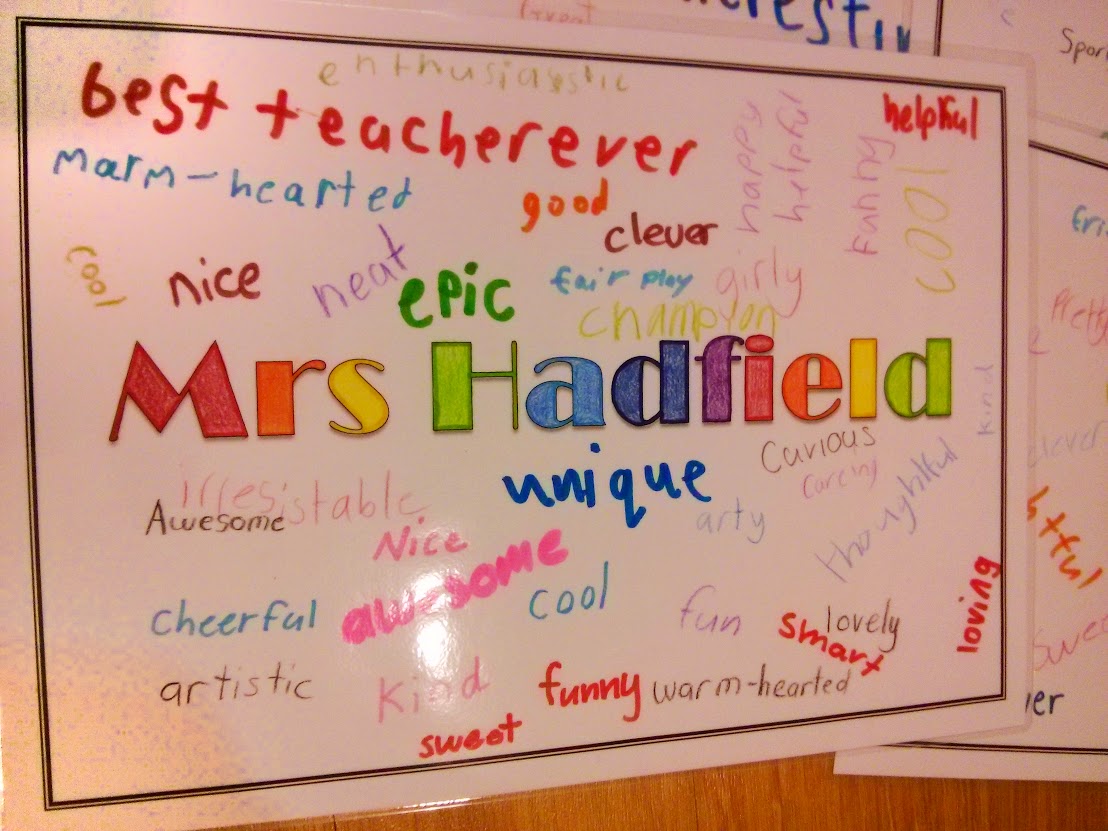 Great
enthusiasstic
best teacherever
helpful
happy
helpful
funny
cool
marm-hearted
good
clever
cool
nice
neat
epic
fair play
girly
champion
Mrs Hadfield
kind
unique
Curious
Careing
irresistable
Awesome
arty
thoughtful
Nice
awesome
cool
cheerful
fun
smart
lovely
loving
artistic
kind
funny
warm-hearted
sweet
Pretty
clever